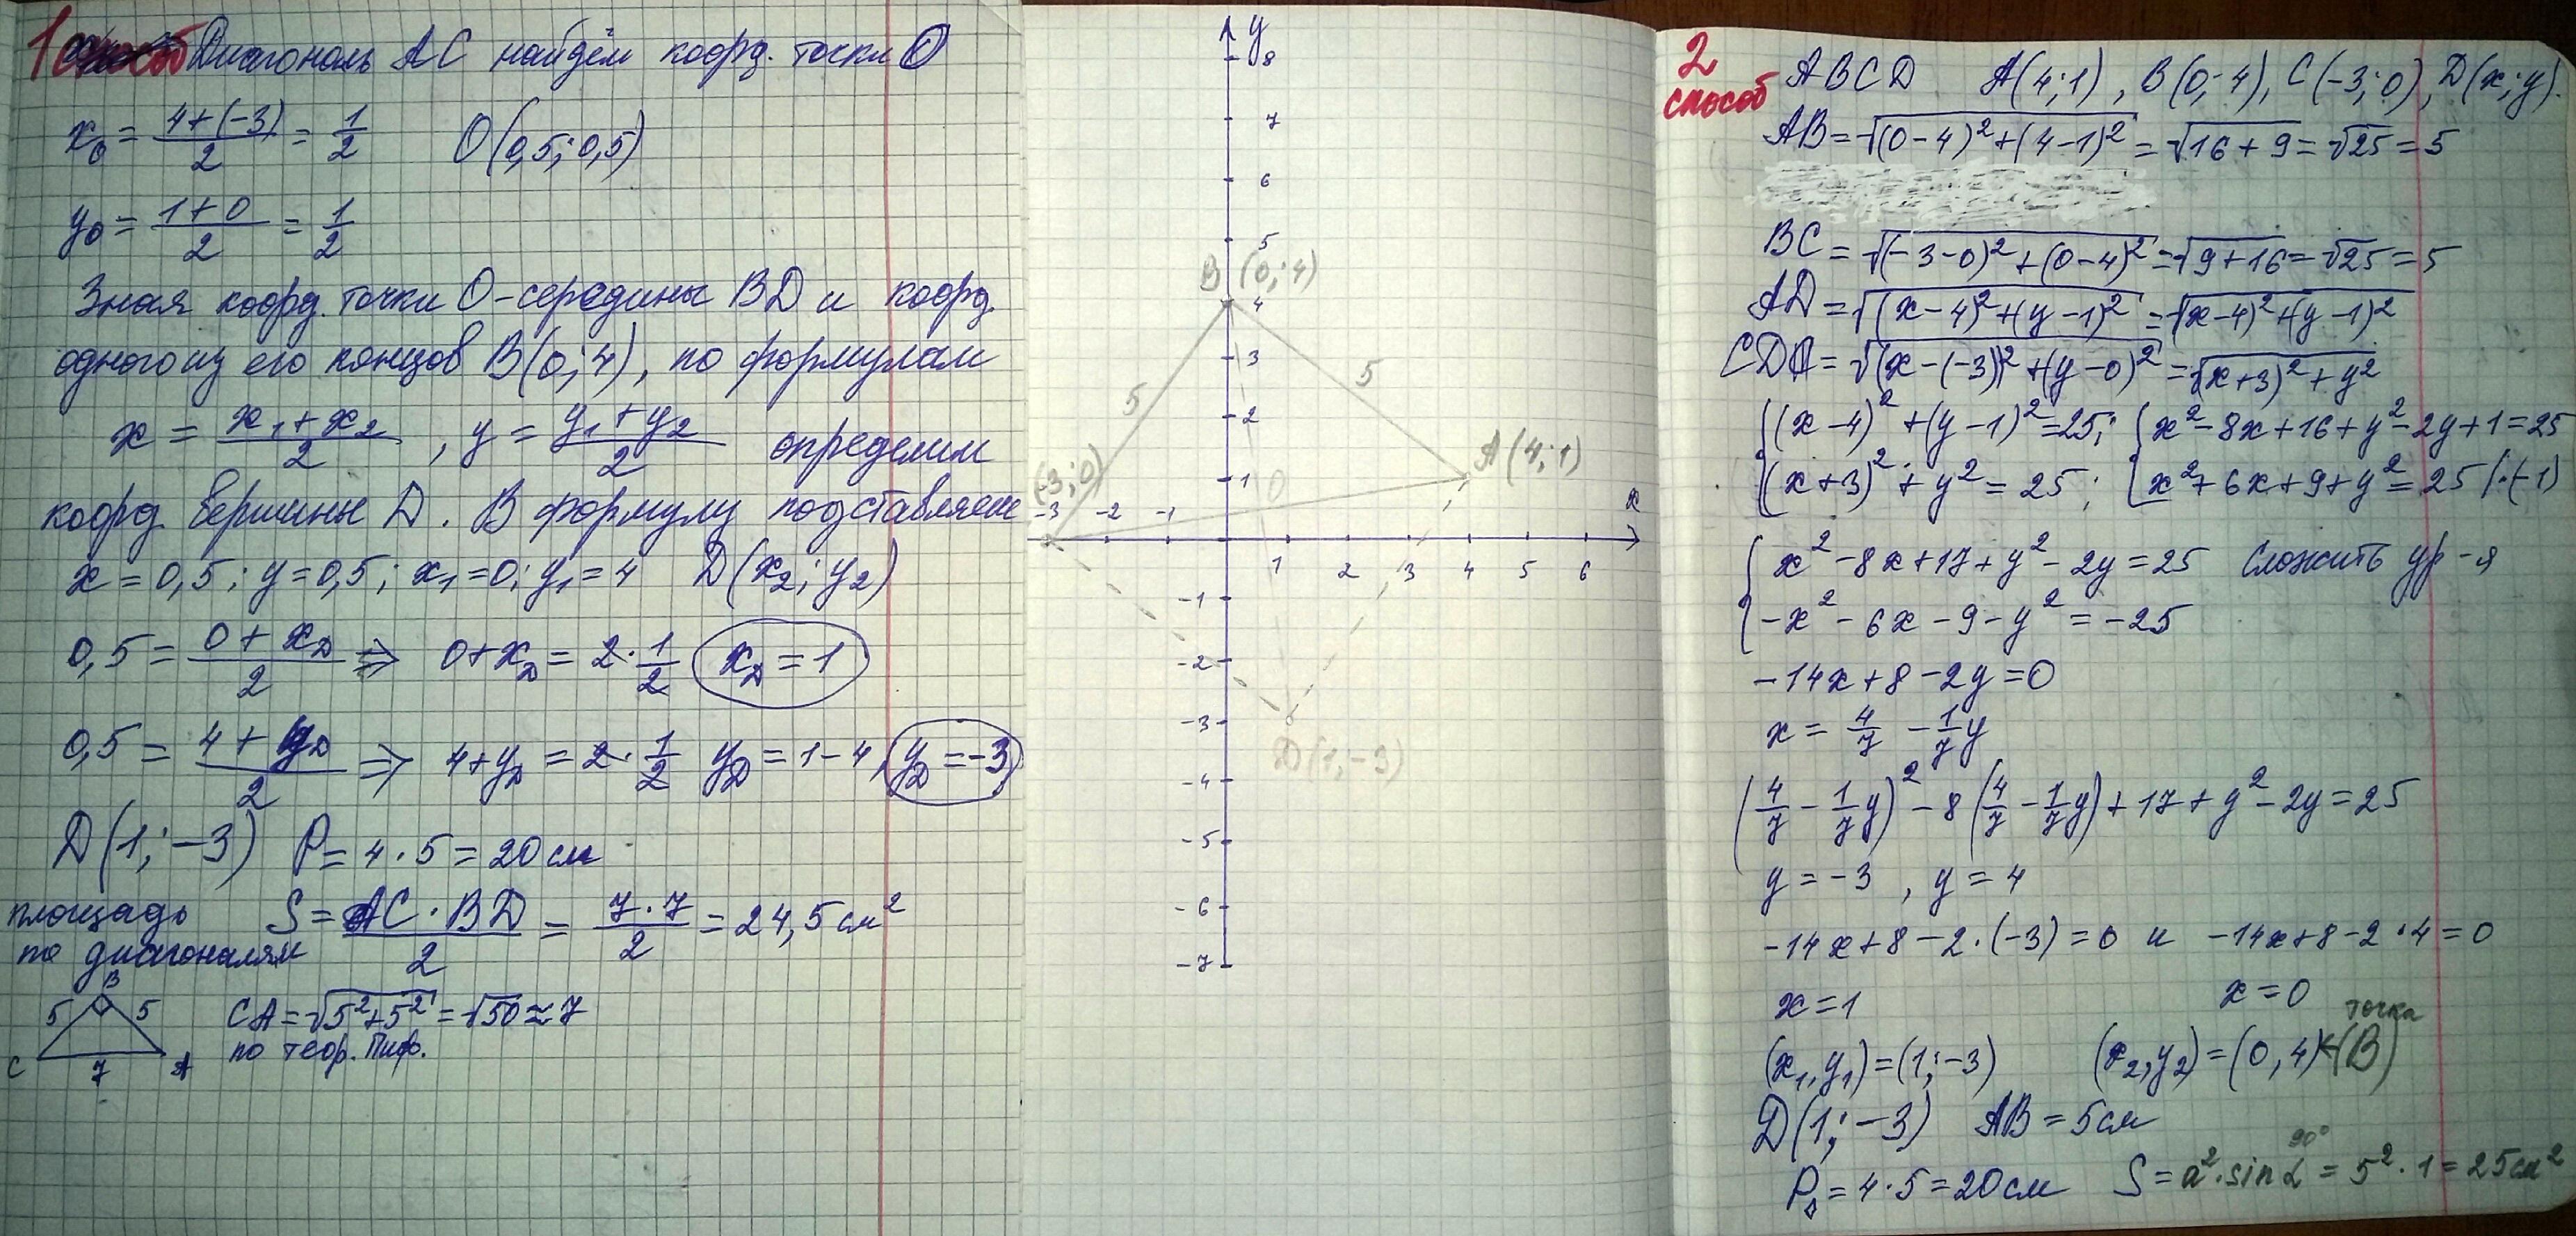 1 способ Диагональ AC найдём коорд. точки O
x₀ = (4+(-3))/2 = 1/2   O(0,5; 0,5)
y₀ = (1+0)/2 = 1/2
Зная коорд. точки O-середины BD и коорд.
одного из его концов B(0; 4), по формулам
x = (x₁+x₂)/2 , y = (y₁+y₂)/2 определим
коорд. вершины D. В формулу подставляем
x=0,5; y=0,5; x₁=0; y₁=4   D(x₂; y₂)
0,5 = (0+x_D)/2 ⇒ 0+x_D = 2·1/2   x_D = 1
0,5 = (4+y_D)/2 ⇒ 4+y_D = 2·1/2   y_D = 1-4, y_D = -3
D(1; -3)   P = 4·5 = 20 см
площадь по диагоналям   S = (AC·BD)/2 = (7·7)/2 = 24,5 см²
B
5 5
C 7 A
CA = √(5²+5²) = √50 ≈ 7
по теор. Пиф.
y
8
7
6
5
B (0; 4)
4
3
5 5
2
A (4; 1)
1
O
(-3; 0)
x
-3 -2 -1 1 2 3 4 5 6
-1
-2
-3
D(1; -3)
-4
-5
-6
-7
2 способ   ABCD   A(4; 1), B(0; 4), C(-3; 0), D(x; y).
AB = √((0-4)²+(4-1)²) = √(16+9) = √25 = 5
BC = √((-3-0)²+(0-4)²) = √(9+16) = √25 = 5
AD = √((x-4)²+(y-1)²) = √((x-4)²+(y-1)²)
CD = √((x-(-3))²+(y-0)²) = √((x+3)²+y²)
{(x-4)²+(y-1)²=25; {x²-8x+16+y²-2y+1=25
{(x+3)²+y²=25; {x²+6x+9+y²=25 /·(-1)
{x²-8x+17+y²-2y=25   Сложить ур-я
{-x²-6x-9-y²=-25
-14x+8-2y=0
x = 4/7 - 1/7y
(4/7 - 1/7y)² - 8(4/7 - 1/7y) + 17 + y² - 2y = 25
y = -3 , y = 4
-14x+8-2·(-3)=0 и -14x+8-2·4=0
x=1   x=0
(x₁,y₁)=(1; -3)   (x₂,y₂)=(0, 4) ← (B) точка
D(1; -3)   AB = 5 см
P◊ = 4·5 = 20 см   S = a²·sin α = 5²·1 = 25 см²
90°